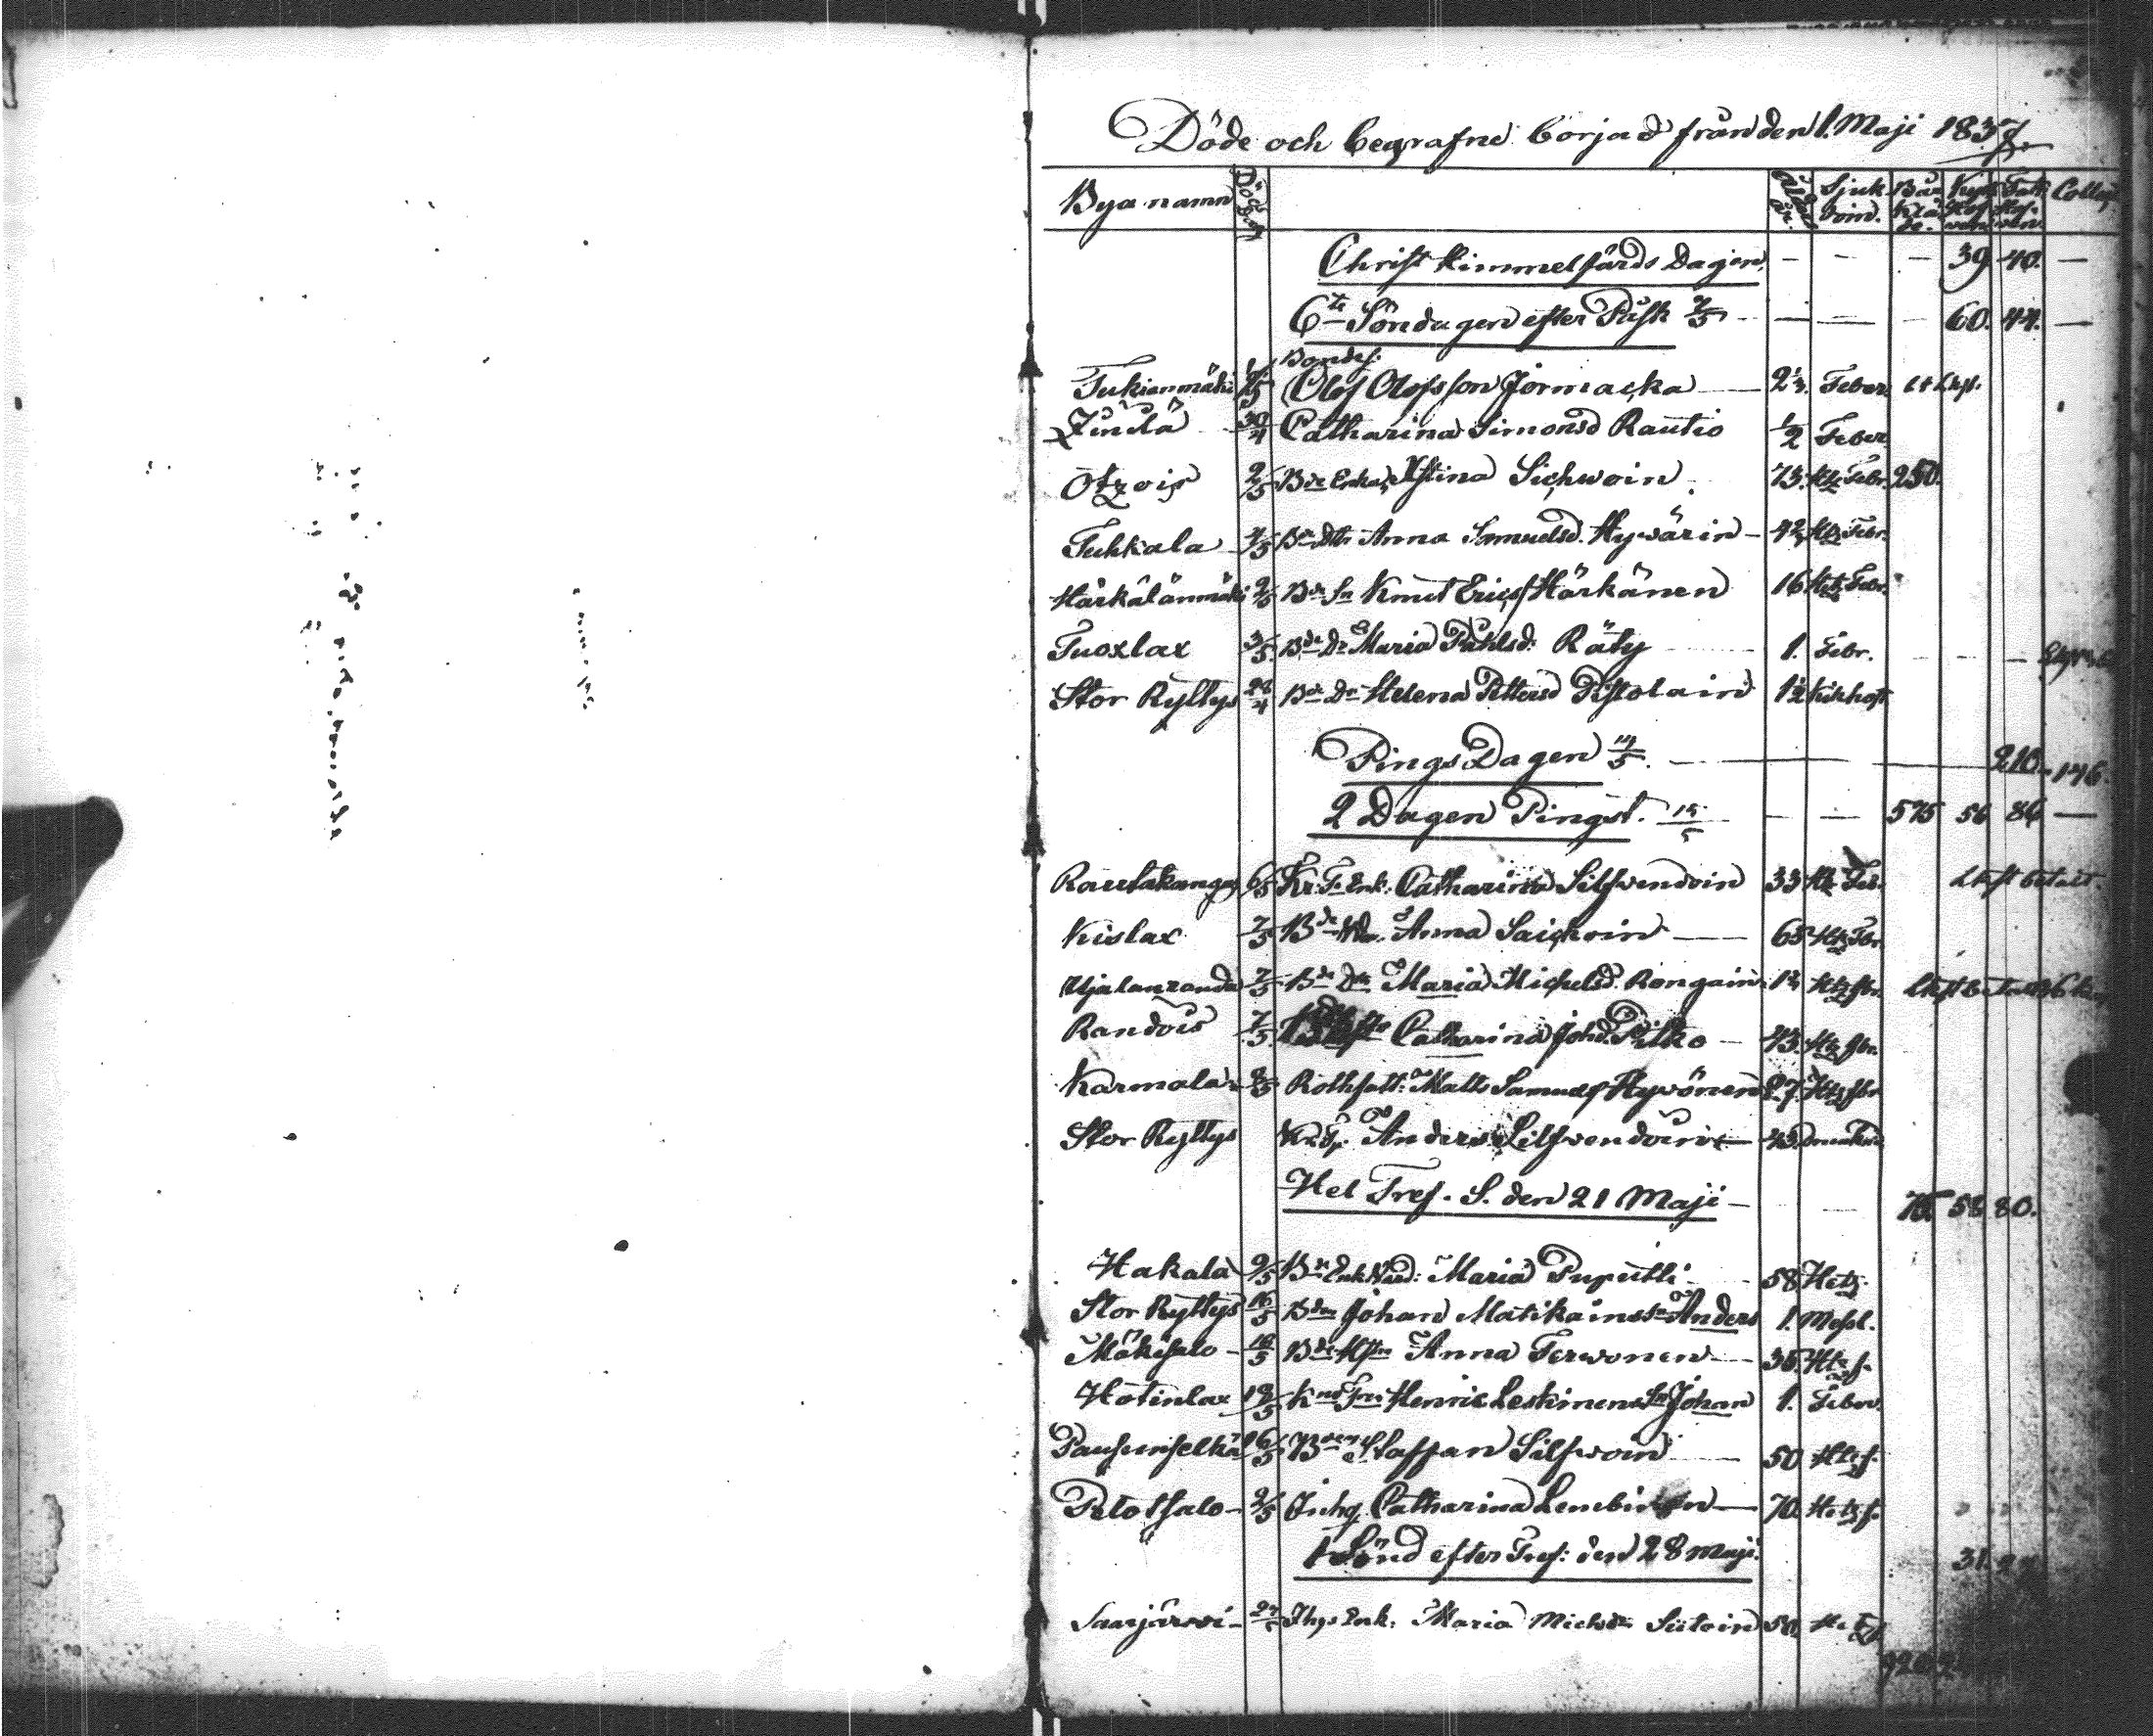 Döde och begrafne börjad från den 1. Maji 1837
Bya namn Döds Ålder Sjukdom. Collect
Christ Himmelfärds Dagen, — — — 39 40. —
6te Söndagen efter Påsk 7/5 — — — 60. 44. —
Bondes.
Tukianmäki /5 Olof Olofsson Jormacka — 2 Feber
30/4 Catharina Simonsd Rautio 1/2 Feber
Otzois 2/5 Bde Enka Stina Sichwoin. 73. Htz Febr. 250.
Tuhkala 4/5 Bde Dtr Anna Samuelsd. Hyvärin — 42 Htz Febr.
Härkälänmäki 2/5 Bde Sn Knut Erics. Härkänen 16 Htz Febr.
Tuoxlax 3/5 Bde Dr Maria Påhlsd: Räty 1. Febr. — — —
Stor Ryttys 28/4 Bde Dr Helena Pettersd Pistolain 1/2 kikhost
Pings Dagen 14/5. — 210. 146.
2 Dagen Pingst. 15/5 — — 575 56 86 —
Rautakangas 6/5 Kr. T. Enk: Catharina Silfvendoin 33 Htz Feb.
Kislax 7/5 Bde Anna Saickoin — 65 Htz Febr.
Hjalanranda 7/5 Bde Dtr Maria Michelsd. Rongain Htz fbr.
Randois 7/5 Catharina Johd. Pitko — 43. Htz fbr.
Karmala 8/5 Rothfatt: Matts Samuels Hyvönen 27. Htz fbr
Stor Ryttys Anders Silfvendoin — 43.
Hel Tref. S. den 21 Maji — — 58 80.
Hakala 9/5 Bde Enk Maria Puputti 58 Hetz.
Stor Ryttys 16/5 Bden Johan Matikains Sn Anders 1. Messl.
Mäkisalo — 18/5 Bde Hstru Anna Terwonen — 35. Htz f.
Hotinlax 19/5 Henric Leskinens Sn Johan 1. Febr.
6/5 Bden Staffan Silfwoin — 50 Htz f.
Petotsalo — 2/5 Inhy Catharina — 70. Hetz f.
1 Sönd efter Tref: den 28 Maji. 31.
Saarjärwi — Ihys Enk: Maria Michsdr Siitoin 50. Hetz f